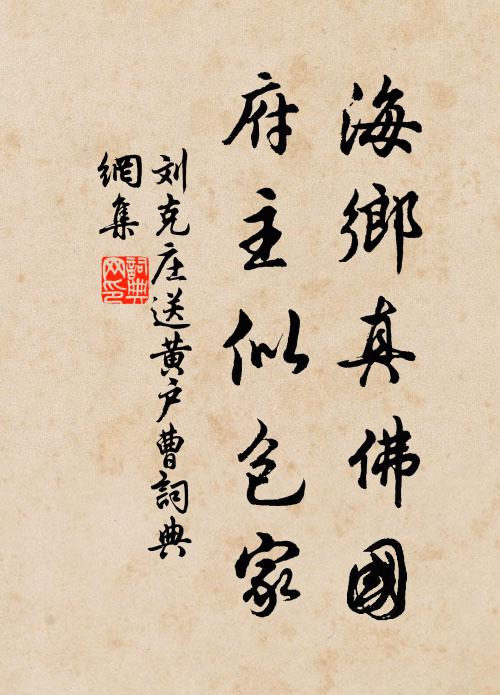 海鄉真佛國
府主似包家
刘克庄送黄户曹詞典
網集
詞典
网印